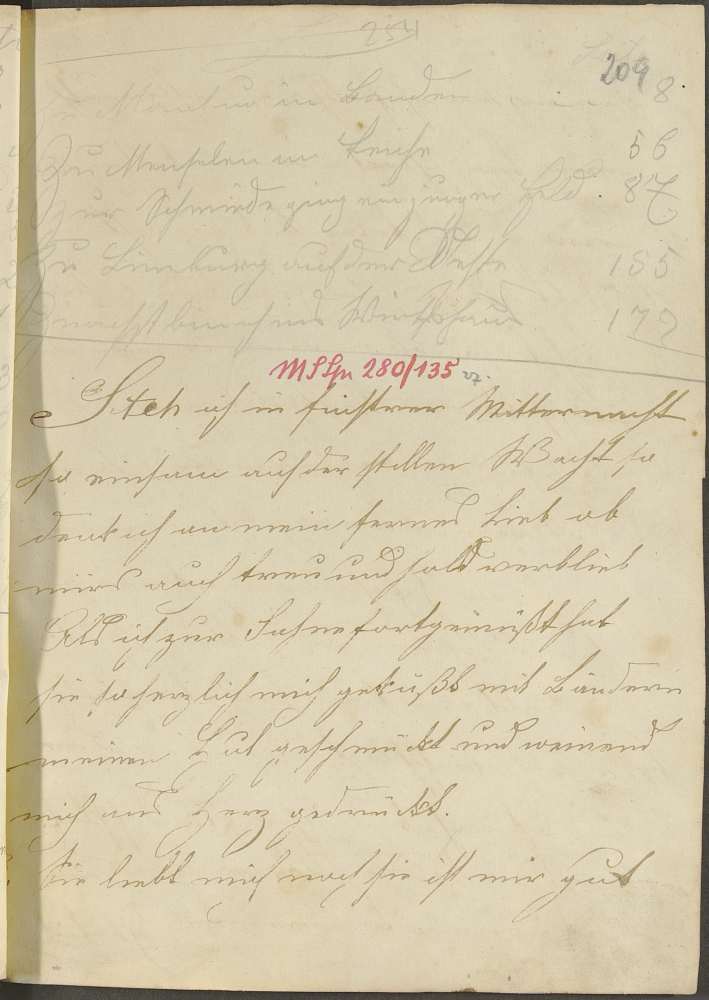 254
209
Zu Mantua in Banden 8
Zu Menschen in 56
Zur Schmiede ging ein junger Held. 87
Zu Limburg auf der Veste 155
nächst bin ich ins Wirtshaus 179
MS Lpr 280/135
Steh ich in finstrer Mitternacht
so einsam auf der stillen Wacht so
denk ich an mein fernes Lieb ob
mirs auch treu und hold verblieb
Als ich zur Fahne fortgemüßt hat
sie so herzlich mich geküßt mit Bändern
meinen Hut geschmückt und weinend
mich ans Herz gedrückt.
Sie liebt mich noch sie ist mir gut